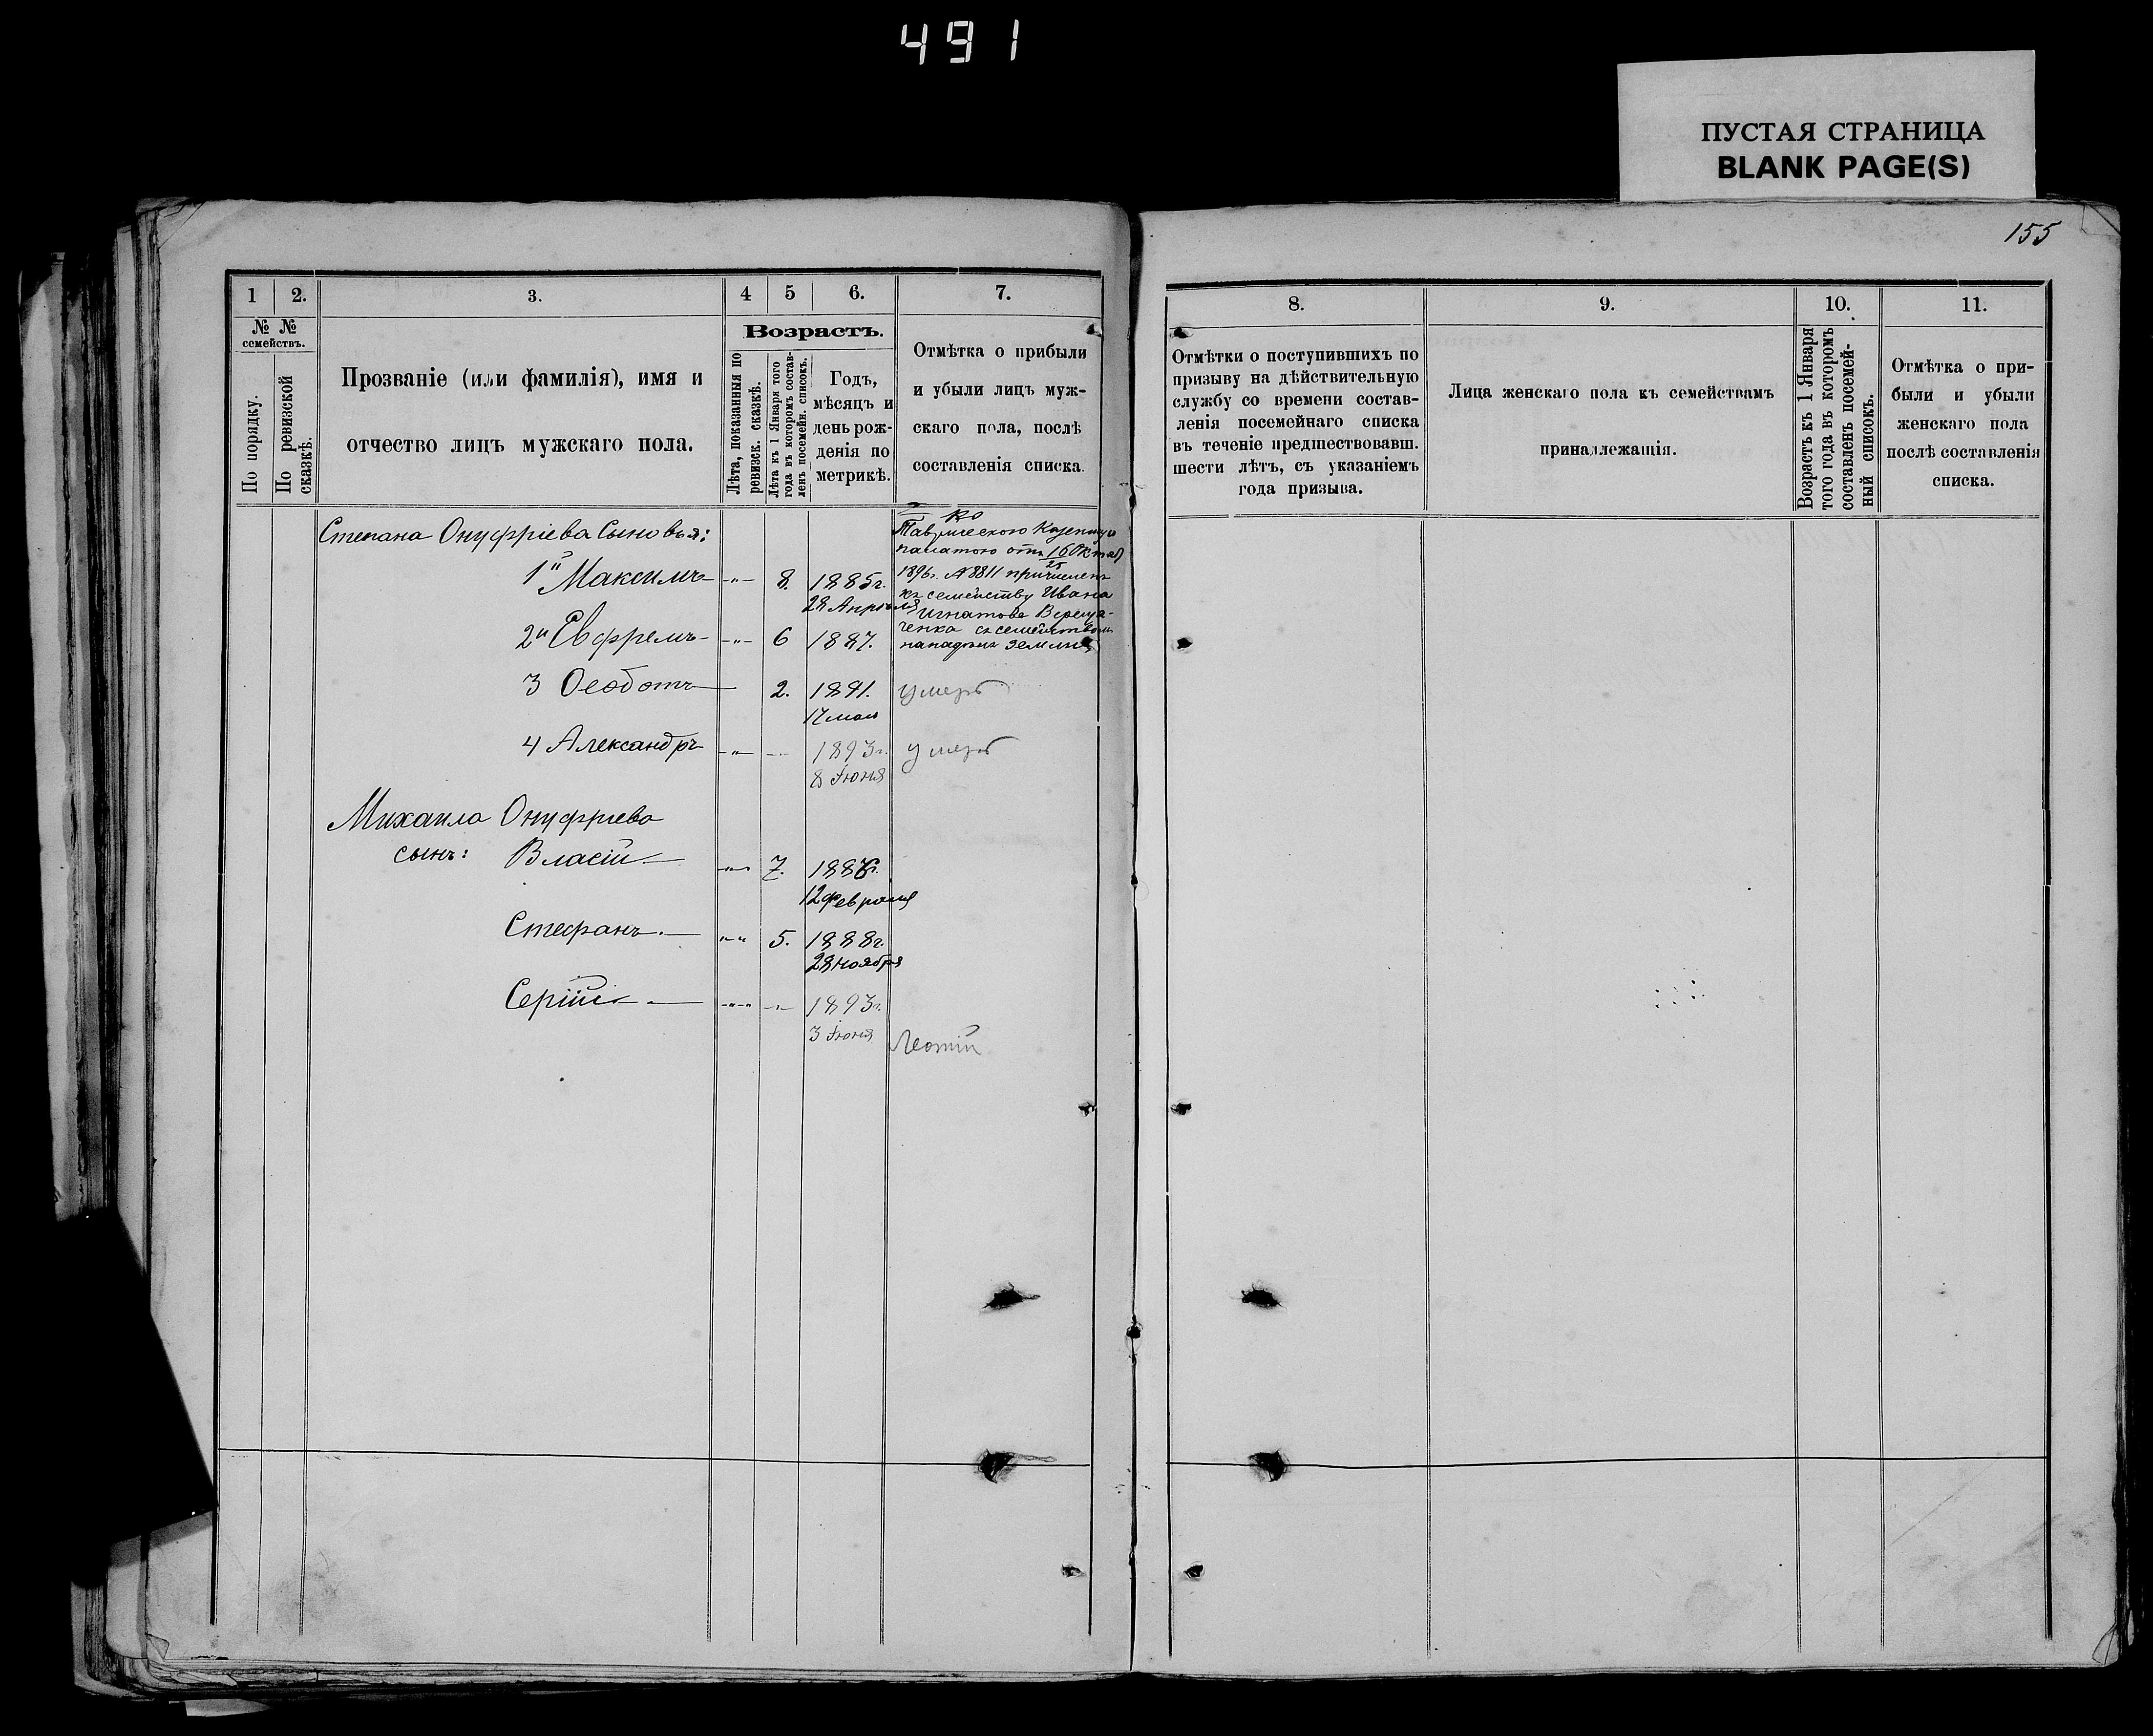 491
ПУСТАЯ СТРАНИЦА
BLANK PAGE(S)
155
1 2. 3. 4 5 6. 7.
№ № семействъ.
По порядку.
По ревизской сказкѣ.
Прозваніе (или фамилія), имя и
отчество лицъ мужскаго пола.
Возрастъ.
Лѣта, показанныя по ревизск. сказкѣ.
Лѣта къ 1 Января того года въ которомъ составленъ посемейн. списокъ.
Годъ,
мѣсяцъ и
день рож-
денія по
метрикѣ.
Отмѣтка о прибыли
и убыли лицъ муж-
скаго пола, послѣ
составленія списка.
Степана Онуфріева Сыновья:
1й Максимъ -„- 8. 1885г.
28 Апрѣля
2й Евфремъ -„- 6 1887.
3 Ѳеодотъ 2. 1891. умеръ
17 мая
4 Александръ -„- — 1893г. умеръ
8 Іюня
Таврическою Казенною
палатою отъ 16 Октяб
25
1896г. №8811 причисленъ
къ семейству Ивана
Игнатова Вереща-
ченка съ семействомъ
надѣлъ земли
Михаила Онуфріева
сынъ: Власій -„- 7. 1886г.
12 февраля
Стефанъ. „„ 5. 1888г.
28 ноября
Сергій -„-„ -„- 1893г.
3 Іюня
8. 9. 10. 11.
Отмѣтки о поступившихъ по
призыву на дѣйствительную
службу со времени состав-
ленія посемейнаго списка
въ теченіе предшествовавш.
шести лѣтъ, съ указаніемъ
года призыва.
Лица женскаго пола къ семействамъ
принадлежащія.
Возрастъ къ 1 Января
того года въ которомъ
составленъ посемей-
ный списокъ.
Отмѣтка о при-
были и убыли
женскаго пола
послѣ составленія
списка.